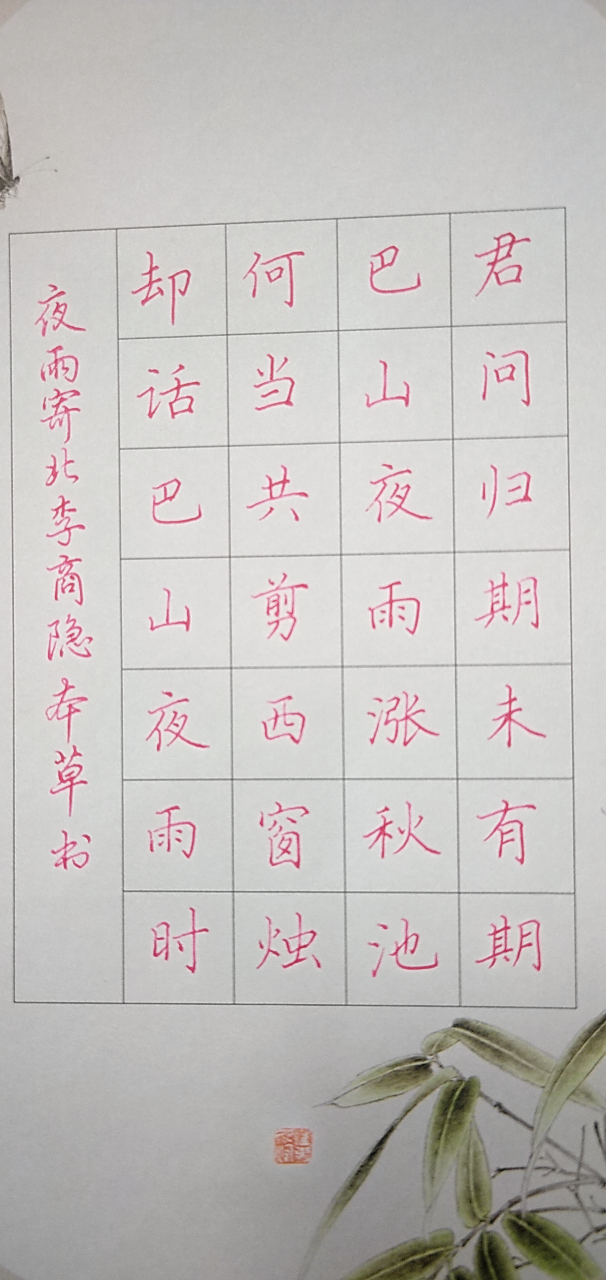 君问归期未有期
巴山夜雨涨秋池
何当共剪西窗烛
却话巴山夜雨时
夜雨寄北李商隐本草书